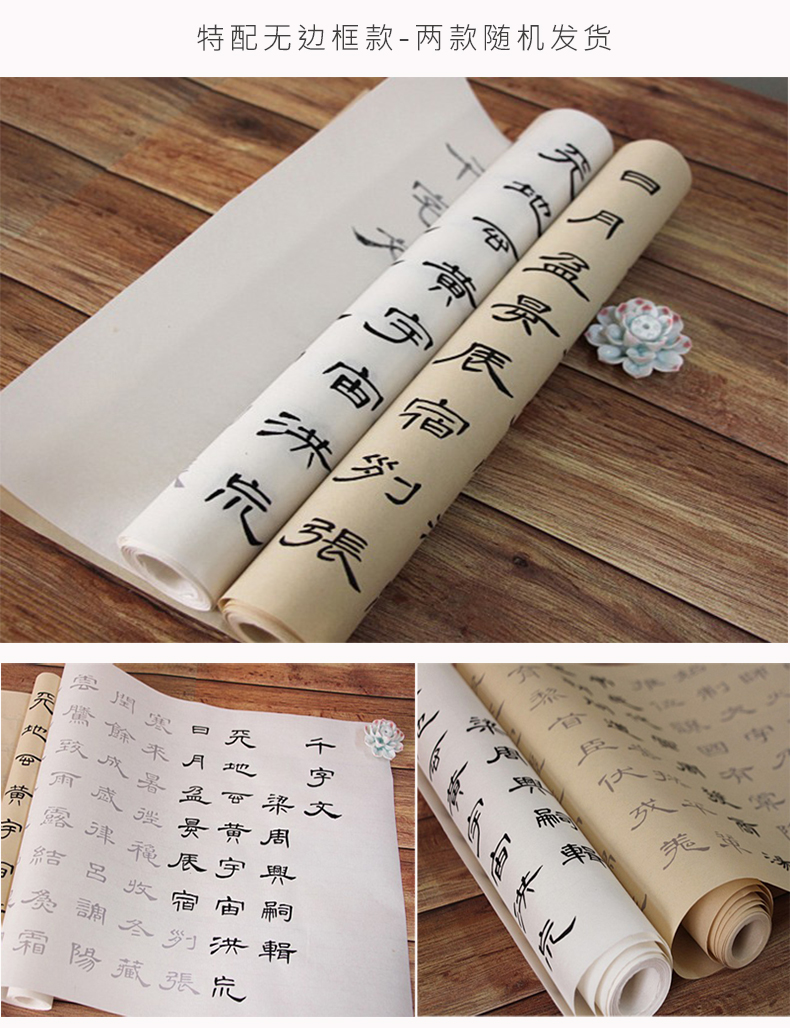 特配无边框款-两款随机发货
千字文
天地玄黄宇宙洪荒
日月盈昃辰宿列張
千字文
梁周興嗣輯
天地玄黄宇宙洪荒
日月盈昃辰宿列張
寒来暑往穐收冬藏
閏餘成歲律吕調陽
雲騰致雨露結為霜
天地玄黄宇
梁周興嗣輯
地玄黄宇宙洪荒
黎首臣伏戎羌